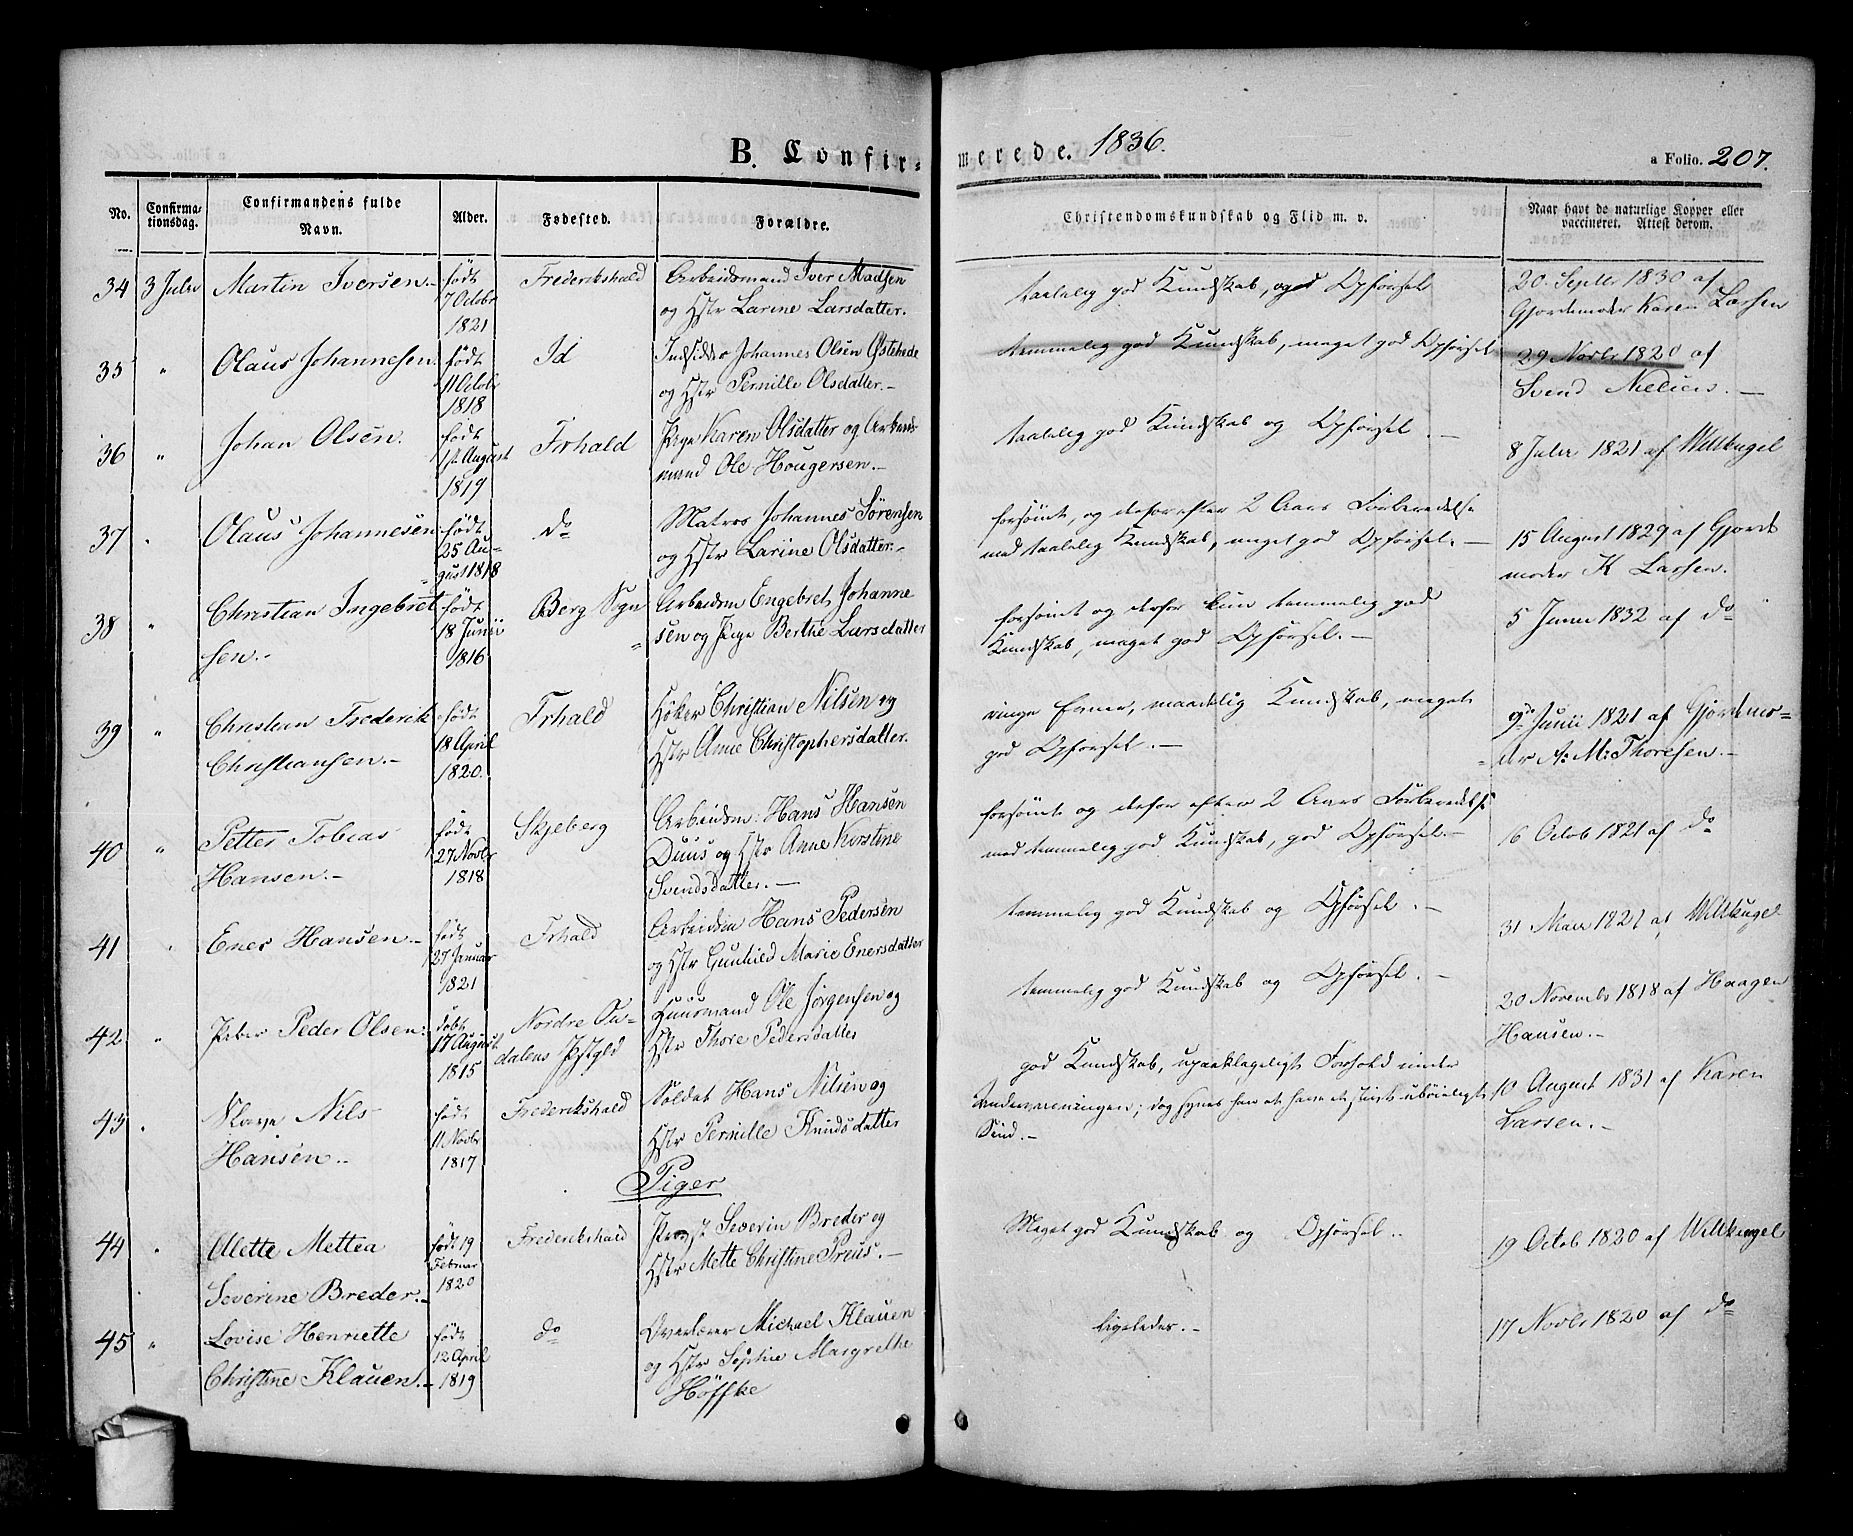 B. Confir-
merede. 1836.
a Folio. 207.
No.
Confirma-
tionsdag.
Confirmandens fulde
Navn.
Alder.
Fødested.
Forældre.
Christendomskundskab og Flid m. v.
Naar havt de naturlige Kopper eller
vaccineret. Attest derom.
34 3 Julii Martin Iversen. født 7 Octobr 1821 Frederikshald Arbeidsmand Iver Madsen
og Hstr Larine Larsdatter.
taalelig god Kundskab, og Opførsel
20. Septbr 1830 af
Gjordemoder Karen Larsen
35 " Olaus Johannesen. født 11 Octobr 1818 Id Indsidder Johannes Olsen Østehede
og Hstr Pernille Olsdatter.-
temmelig god Kundskab, meget god Opførsel
29 Novbr 1820 af
Svend Nelius.-
36 " Johan Olsen. født 1ste August 1819 Frhald Pige Karen Olsdatter og Arbeids
mand Ole Hougersen.-
taalelig god Kundskab og Opførsel.-
8 Julii 1821 af Wiltkugel
37 " Olaus Johannesen født 25 Au-
gust 1818 do Matros Johannes Sørensen
og Hstr Larine Olsdatter.-
forsømt, og derfor efter 2 Aars Forberedelse
med taalelig Kundskab, meget god Opførsel.-
15 August 1829 af Gjorde
moder K Larsen.
38 " Christian Ingebret
sen.- født 18 Junii 1816 Berg Sogn Arbeidsm Engebret Johanne
sen og Pige Berthe Larsdatter
forsømt og derfor kun temmelig god
Kundskab, meget god Opførsel.-
5 Junii 1832 af do
39 " Christian Frederik
Christiansen.- født 18 April 1820. Frhald Høker Christian Nilsen og
Hstr Anne Christophersdatter.
ringe Evner, maadelig Kundskab, meget
god Opførsel.-
9de Junii 1821 af Gjordemo-
der A: M: Thoresen.-
40 " Petter Tobias
Hansen.- født 27 Novbr 1818 Skjeberg Arbeidsm: Hans Hansen
Duus og Hstr Anne Kirstine
Svendsdatter.-
forsømt og derfor efter 2 Aars Forberedelse
med temmelig god Kundskab, god Opførsel.-
16 Octob 1821 af do
41 " Ener Hansen.- født 27 Januar 1821 Frhald Arbeidsm Hans Pedersen
og Hstr Gunhild Marie Enersdatter
temmelig god Kundskab og Opførsel.-
31 Mai 1821 af Wiltkugel
42 " Peder Olsen. født 17 August 1815 Nordre Ou-
dalens Pstgld Ole Jørgensen og
Hstr Thore Pedersdatter
temmelig god Kundskab og Opførsel.-
20 Novembr 1818 af Haagen
Hansen.-
43 " Slave Nils
Hansen.- født 11 Novbr 1817 Frederikshald Soldat Hans Nilsen og
Hstr Pernille Knudsdatter
god Kundskab, upaaklageligt Forhold under
Underviisningen; dog synes han at have et ubøieligt
Sind.-
10 August 1831 af Karen
Larsen.-
Piger
44 " Alette Mettea
Severine Breder.- født 19 Februar 1820 Frederikshald Severin Breder og
Hstr Mette Christine Preus.-
Meget god Kundskab og Opførsel.
19 Octob 1820 af Wiltkugel
45 " Lovise Henriette
Christine Klauen.- født 12 April 1819 do Overlærer Michael Klauen
og Hstr Sophie Margrethe
Höffke
ligeledes.-
17 Novbr 1820 af do